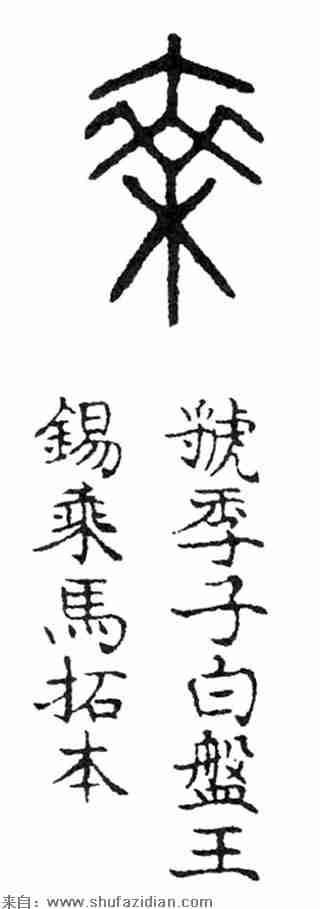 乘
虢季子白盤王
錫乘馬拓本
来自：www.shufazidian.com